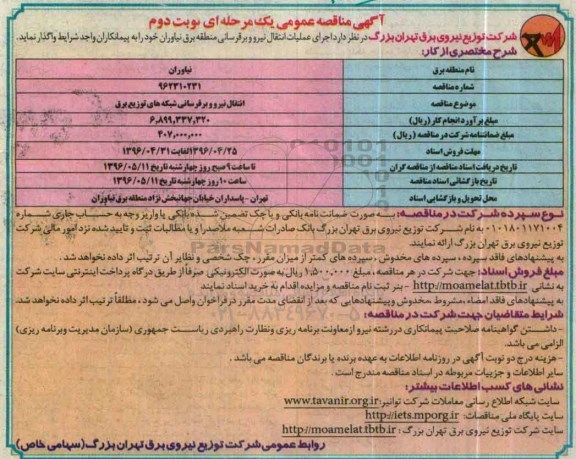 آگهی مناقصه عمومی یک مرحله ای نوبت دوم
شرکت توزیع نیروی برق تهران بزرگ در نظر دارد اجرای عملیات انتقال نیرو و برقرسانی منطقه برق نیاوران خود را به پیمانکاران واجد شرایط واگذار نماید.
شرح مختصری از کار:
نام منطقه برق نیاوران
شماره مناقصه ۹۶۲۳۱۰۲۳۱
موضوع مناقصه انتقال نیرو و برقرسانی شبکه های توزیع برق
مبلغ برآورد انجام کار (ریال) ۶,۸۹۹,۳۳۷,۳۲۰
مبلغ ضمانتنامه شرکت در مناقصه (ریال) ۴۰۷,۰۰۰,۰۰۰
مهلت فروش اسناد ۱۳۹۶/۰۴/۲۵ لغایت ۱۳۹۶/۰۴/۳۱
تاریخ دریافت اسناد مناقصه از مناقصه گران تا ساعت ۹ صبح روز چهارشنبه تاریخ ۱۳۹۶/۰۵/۱۱
تاریخ بازگشائی اسناد مناقصه ساعت ۱۰ روز چهارشنبه تاریخ ۱۳۹۶/۰۵/۱۱
محل تحویل و بازگشایی اسناد تهران - پاسداران خیابان جهانبخش نژاد منطقه برق نیاوران
نوع سپرده شرکت در مناقصه: به صورت ضمانت نامه بانکی و یا چک تضمین شده بانکی یا واریز وجه به حساب جاری شماره
۰۱۰۱۸۰۱۱۷۱۰۰۴ به نام شرکت توزیع نیروی برق تهران بزرگ بانک صادرات شعبه ملاصدرا و یا مطالبات ثبت و تایید شده نزد امور مالی شرکت
توزیع نیروی برق تهران بزرگ ارائه نمایند.
به پیشنهادهای فاقد سپرده، سپرده های مخدوش، سپرده های کمتر از میزان مقرر، چک شخصی و نظایر آن ترتیب اثر داده نخواهد شد.
مبلغ فروش اسناد: جهت شرکت در هر مناقصه، مبلغ ۱,۵۰۰,۰۰۰ ریال به صورت الکترونیکی صرفا از طریق درگاه پرداخت اینترنتی سایت شرکت
به نشانی http://moamelat.tbtb.ir - بنر ثبت نام مناقصه و مزایده اقدام به خرید اسناد نمایند
به پیشنهادهای فاقد امضاء، مشروط، مخدوش و پیشنهادهایی که بعد از انقضای مدت مقرر در فراخوان واصل می شود، مطلقاً ترتیب اثر داده نخواهد شد.
شرایط متقاضیان جهت شرکت در مناقصه:
- داشتن گواهینامه صلاحیت پیمانکاری در رشته نیرو از معاونت برنامه ریزی ونظارت راهبردی ریاست جمهوری (سازمان مدیریت وبرنامه ریزی)
الزامی می باشد.
- هزینه درج دو نوبت آگهی در روزنامه اطلاعات به عهده برنده یا برندگان مناقصه می باشد.
سایر اطلاعات و جزییات مربوطه در اسناد مناقصه مندرج است.
نشانی های کسب اطلاعات بیشتر:
سایت شبکه اطلاع رسانی معاملات شرکت توانیر: www.tavanir.org.ir
سایت پایگاه ملی مناقصات: http://iets.mporg.ir
سایت شرکت توزیع نیروی برق تهران بزرگ: http://moamelat.tbtb.ir
روابط عمومی شرکت توزیع نیروی برق تهران بزرگ (سهامی خاص)
ParsNamadData